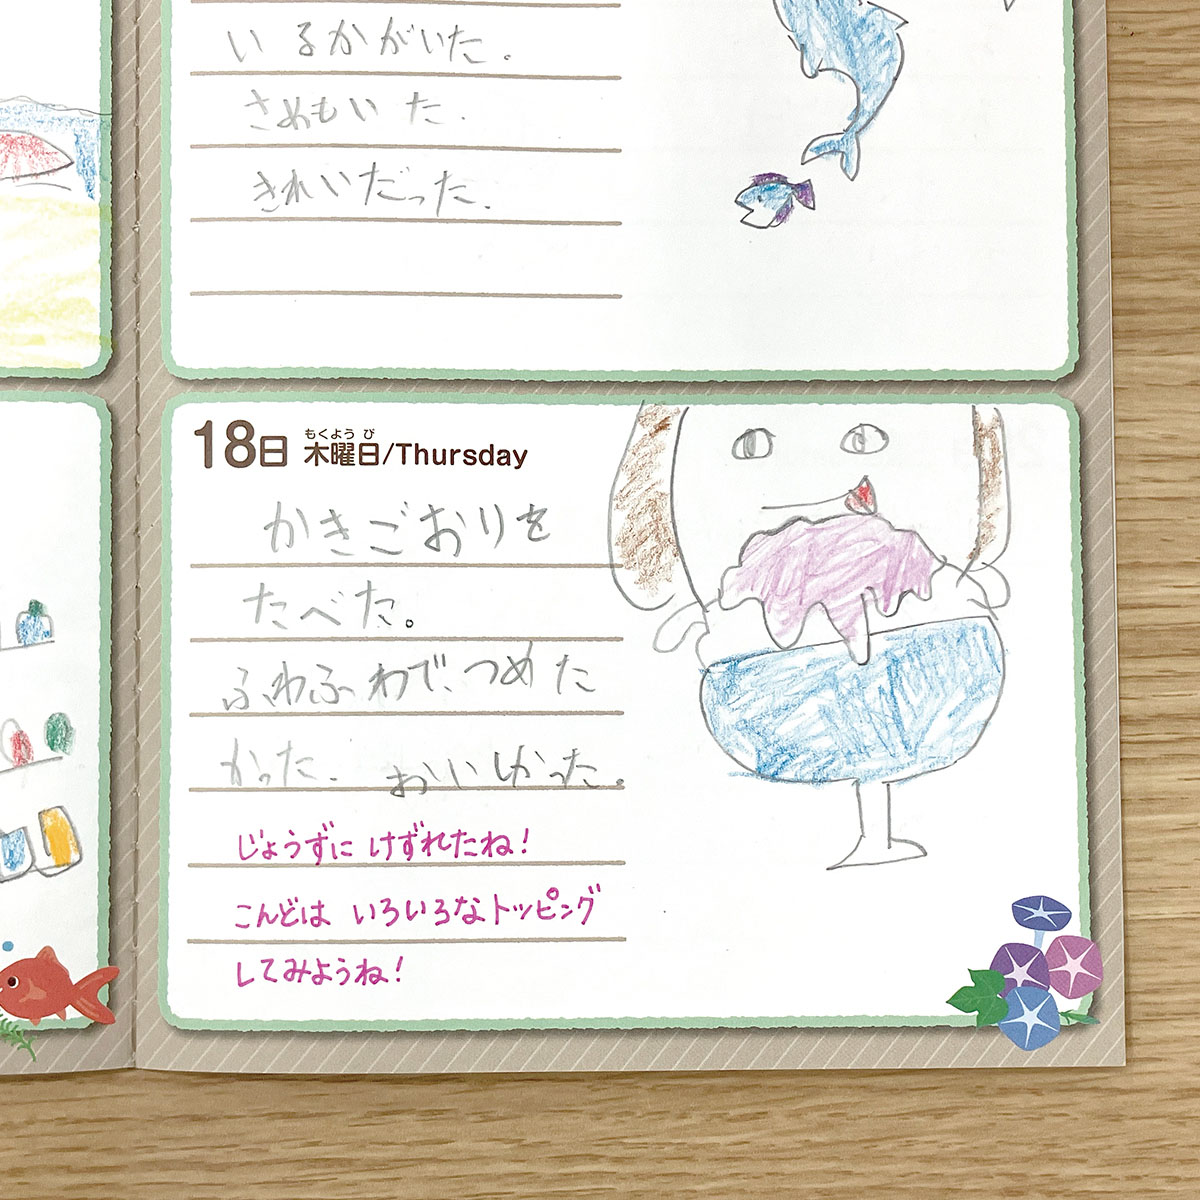 いるかがいた。
さめもいた.
きれいだった.
18日 木曜日/Thursday
もくようび
かきごおりを
たべた。
ふわふわで、つめた
かった. おいしかった。
じょうずに けずれたね!
こんどは いろいろなトッピング
してみようね!